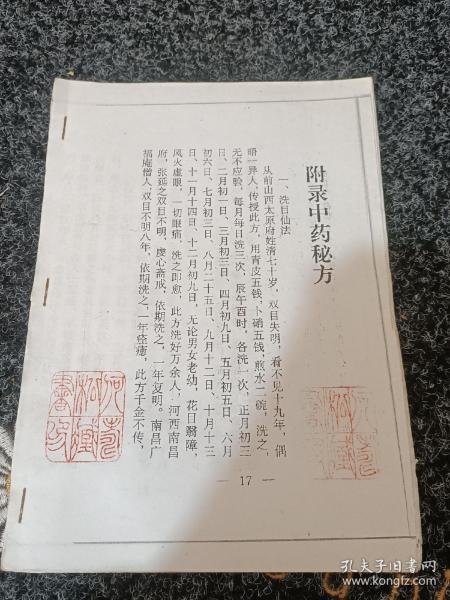 附录中药秘方
一、洗目仙法
从前山西太原府姓清七十岁，双目失明，看不见十九年，偶
晤一异人，传授此方，用青皮五钱，卜硝五钱，煎水二碗，洗之，
无不应验，每月每日洗三次，辰午酉时，各洗一次，正月初三
日、二月初一日、三月初三日、四月初九日、五月初五日、六月
初六日、七月初三日、八月二十五日、九月十二日、十月十三
日、十一月十四日、十二月初九日，无论男女老幼，花目翳障，
风火虚眼，一切眼痛，洗之即愈，此方洗好万余人，河西南昌
府，张延之双目不明，虔心斋戒，依期洗之，一年复明。南昌广
福庵僧人，双目不明八年，依期洗之，一年痊癒，此方千金不传，
— 17 —
孔夫子旧书网